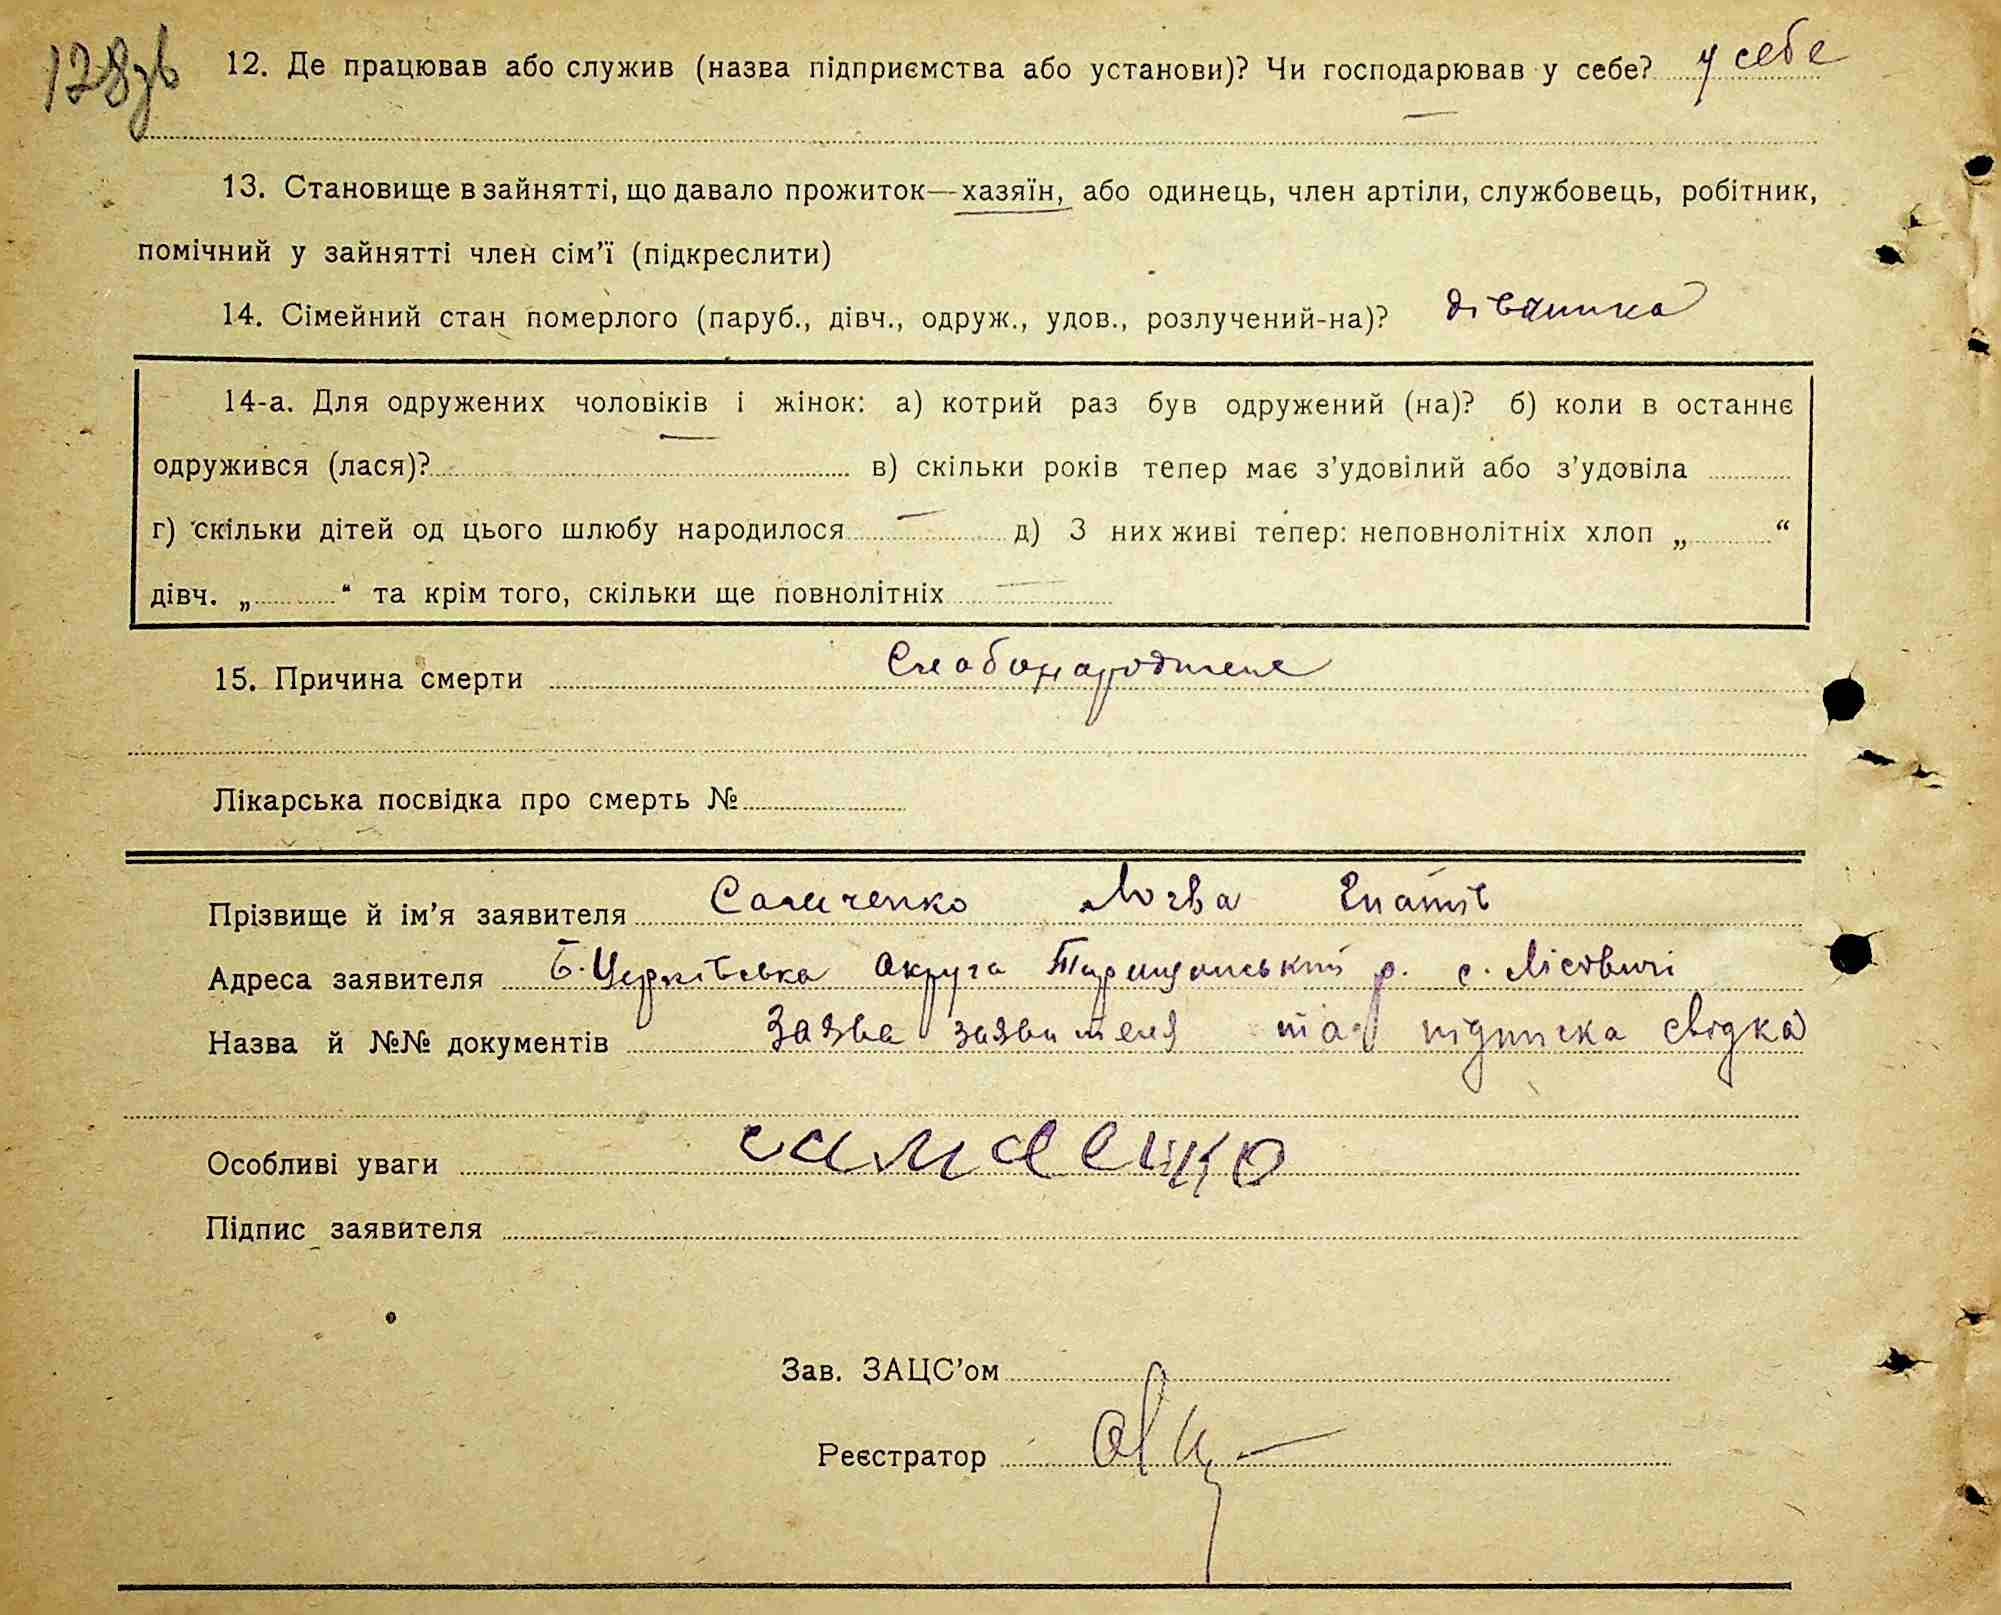 128зв
12. Де працював або служив (назва підприємства або установи)? Чи господарював у себе? у себе
13. Становище в зайнятті, що давало прожиток—хазяїн, або одинець, член артіли, службовець, робітник,
помічний у зайнятті член сім’ї (підкреслити)
14. Сімейний стан померлого (паруб., дівч., одруж., удов., розлучений-на)? дівчинка
14-а. Для одружених чоловіків і жінок: а) котрий раз був одружений (на)? б) коли в останнє
одружився (лася)? в) скільки років тепер має з’удовілий або з’удовіла
г) скільки дітей од цього шлюбу народилося — д) З них живі тепер: неповнолітніх хлоп „ “
дівч. „ “ та крім того, скільки ще повнолітніх —
15. Причина смерти Слабонароджене
Лікарська посвідка про смерть №
Прізвище й ім’я заявителя Логва Гнатів
Адреса заявителя Б-Церківська округа Таращанський р. с. Лісовичі
Назва й №№ документів Заява заявителя та підписка свідка
Особливі уваги
Підпис заявителя
Зав. ЗАЦС’ом
Реєстратор